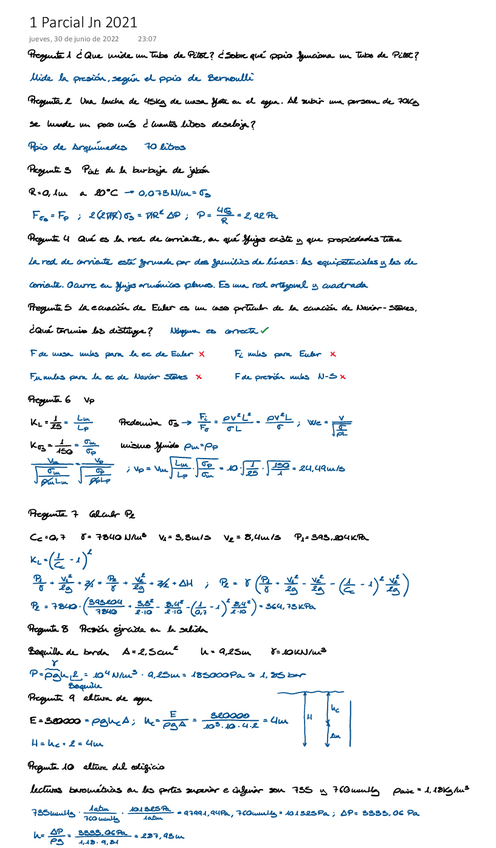 1 Parcial Jn 2021
jueves, 30 de junio de 2022 23:07
Pregunta 1 ¿Que mide un Tubo de Pitot? ¿Sobre qué ppio funciona un Tubo de Pitot?
Mide la presión, según el ppio de Bernoulli
Pregunta 2 Una lancha de 45kg de masa flota en el agua. Al subir una persona de 70kg
se hunde un poco más ¿cuantos litros desaloja?
Ppio de Arquímedes 70 litros
Pregunta 3 Pint de la burbuja de jabón
R=0,1m a 20°C → 0,073 N/m = σs
Fσs = Fp ; 2(2πR)σs = πR² ΔP ; P = 4σs/R = 2,92 Pa
Pregunta 4 Qué es la red de corriente, en qué flujo existe y que propiedades tiene
La red de corriente está formada por dos familias de líneas: las equipotenciales y las de
corriente. Ocurre en flujos armónicos planos. Es una red ortogonal y cuadrada
Pregunta 5 La ecuación de Euler es un caso particular de la ecuación de Navier-Stokes.
¿Qué termino los distingue? Ninguna es correcta ✓
F de masa nulas para la ec de Euler ✗ Fi nulas para Euler ✗
Fμ nulas para la ec de Navier Stokes ✗ F de presión nulas N-S ✗
Pregunta 6 Vp
KL = 1/25 = Lm/Lp Predomina σs → Fi/Fσ = ρV²L²/σL = ρV²L/σ ; We = V/√(σ/ρL)
Kσs = 1/150 = σm/σp mismo fluido ρm=ρp
Vm/√(σm/ρLm) = Vp/√(σp/ρLp) ; Vp = Vm √(Lm/Lp) · √(σp/σm) = 10 · √(1/25) · √(150/1) = 24,49m/s
Pregunta 7 Calcular P2
Cc=0,7 γ= 7840 N/m³ V1= 3,8m/s V2 = 8,4m/s P1= 393,204KPa
KL = (1/Cc - 1)²
P1/γ + V1²/2g + z1 = P2/γ + V2²/2g + z2 + ΔH ; P2 = γ (P1/γ + V1²/2g - V2²/2g - (1/Cc - 1)² V2²/2g)
P2 = 7840 · (393204/7840 + 3,8²/2·10 - 8,4²/2·10 - (1/0,7 - 1)² 8,4²/2·10) = 364,73kPa
Pregunta 8 Presión ejercida en la salida
Boquilla de borda A= 2,5cm² h= 9,25m γ=10KN/m³
γ
P = ρgh·2 = 10⁴ N/m³ · 9,25m = 185000Pa ≈ 1,85 bar
Boquilla
Pregunta 9 altura de agua
E = 320000 = ρghcA ; hc = E/ρgA = 320000/10³·10·4·2 = 4m
H = hc + 2 = 4m
H hc 2m
Pregunta 10 altura del edificio
lecturas barométricas en las partes superior e inferior son 735 y 760mmHg ρaire = 1,18kg/m³
735mmHg · 1atm/760mmHg · 101325Pa/1atm = 97991,94Pa, 760mmHg = 101325Pa ; ΔP = 3333.06 Pa
h = ΔP/ρg = 3333,06Pa/1,18·9,81 = 287,93m